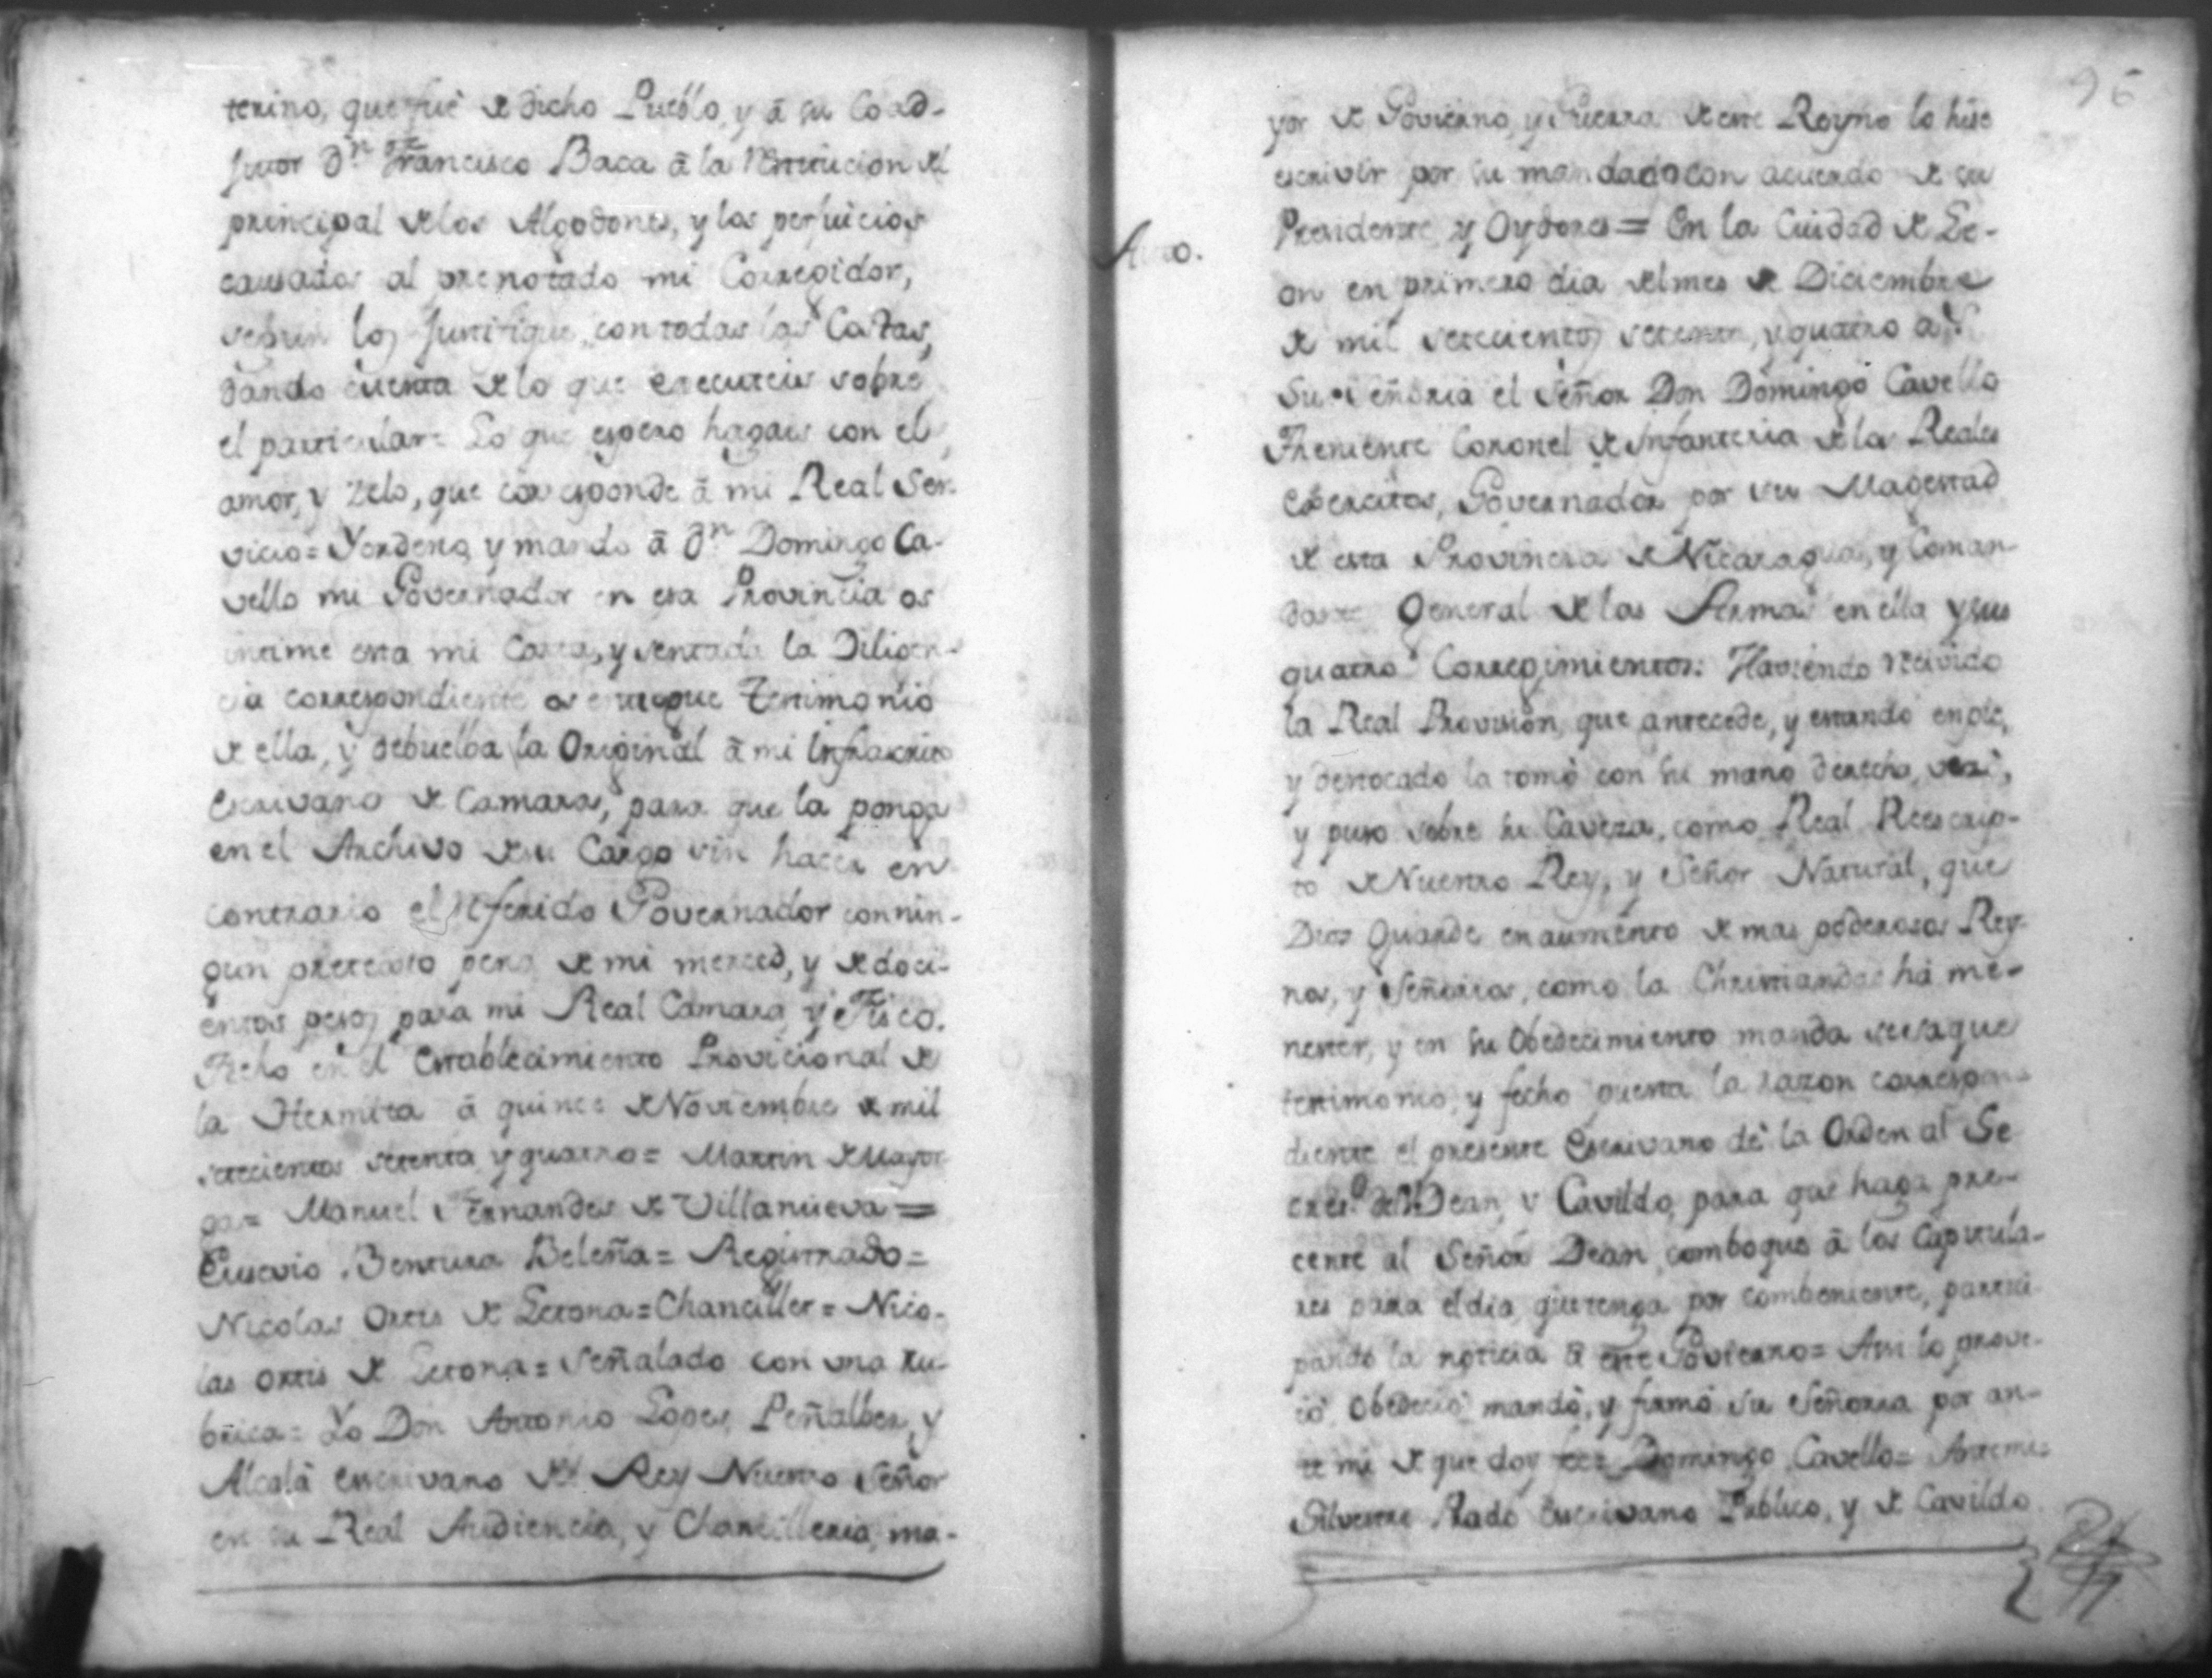 terino, que fue de dicho Pueblo, y â su Coad-
jutor Dn. Francisco Baca â la restitucion del
principal de los Algodones, y los perjuicios
causados al prenotado mi Corregidor,
segun los justifique, con todas las Costas,
dando cuenta de lo que executeis sobre
el particular= Lo que espero hagaes con el
amor, y zelo, que corresponde â mi Real Ser-
vicio= Yordeno, y mando â Dn. Domingo Ca-
vello mi Governador en esa Provincia os
intime esta mi Carta, y sentada la Diligen-
cia correspondiente os entregue Testimonio
de ella, y debuelba la Original â mi Infrascrito
Escrivano de Camara, para que la ponga
en el Archivo de su Cargo sin hacer en
contrario el referido Governador con nin-
gun pretexto pena de mi merced, y de doci-
entos pesos para mi Real Camara, y Fisco.
Fecho en el Establecimiento Provicional de
la Hermita â quince de Noviembre de mil
setecientos setenta y quatro= Martin de Mayor-
ga= Manuel Fernandes de Villanueva=
Eusevio Bentura Beleña= Registrado=
Nicolas Ortis de Letona= Chanciller= Nico-
las Ortis de Letona= Señalado con una ru-
brica= Yo Don Antonio Lopes Peñalber, y
Alcalâ Escrivano del Rey Nuestro Señor
en su Real Audiencia, y Chancilleria, ma-
95
yor de Govierno, y Guerra de este Reyno lo hise
escrivir por su mandado con acuerdo de su
Presidente, y Oydores= En la Cuidad de Le-
on en primero dia del mes de Diciembre
de mil setecientos setenta, y quatro a.s
Su Señoria el Señor Don Domingo Cavello
Theniente Coronel de Infanteria de los Reales
Exercitos, Governador por su Magestad
de esta Provincia de Nicaragua, y Coman-
dante General de las Armas en ella y sus
quatro Corregimientos: Haviendo recivido
la Real Provision, que antecede, y estando en pie,
y destocado la tomò con su mano derecha, vesò,
y puso sobre su Caveza, como Real Reescrip-
to de Nuestro Rey, y Señor Natural, que
Dios Guarde en aumento de mas poderosos Rey-
nos, y Señorios, como la Christiandad há me-
nester, y en su Obedecimiento manda se saque
testimonio, y fecho puesta la razon correspon-
diente el presente Escrivano dé la Orden al Se-
creto. del V. Dean, y Cavildo, para que haga pre-
cente al Señor Dean, comboque â los Capitula-
res para el dia, que tenga por combeniente, partici-
pando la noticia â este Govierno= Assi lo prove-
ió Obedeció mandó, y firmó su Señoria por an-
te mi de que doy fee= Domingo Cavello= Antemi=
Silvestre Rado Escrivano Publico, y de Cavildo